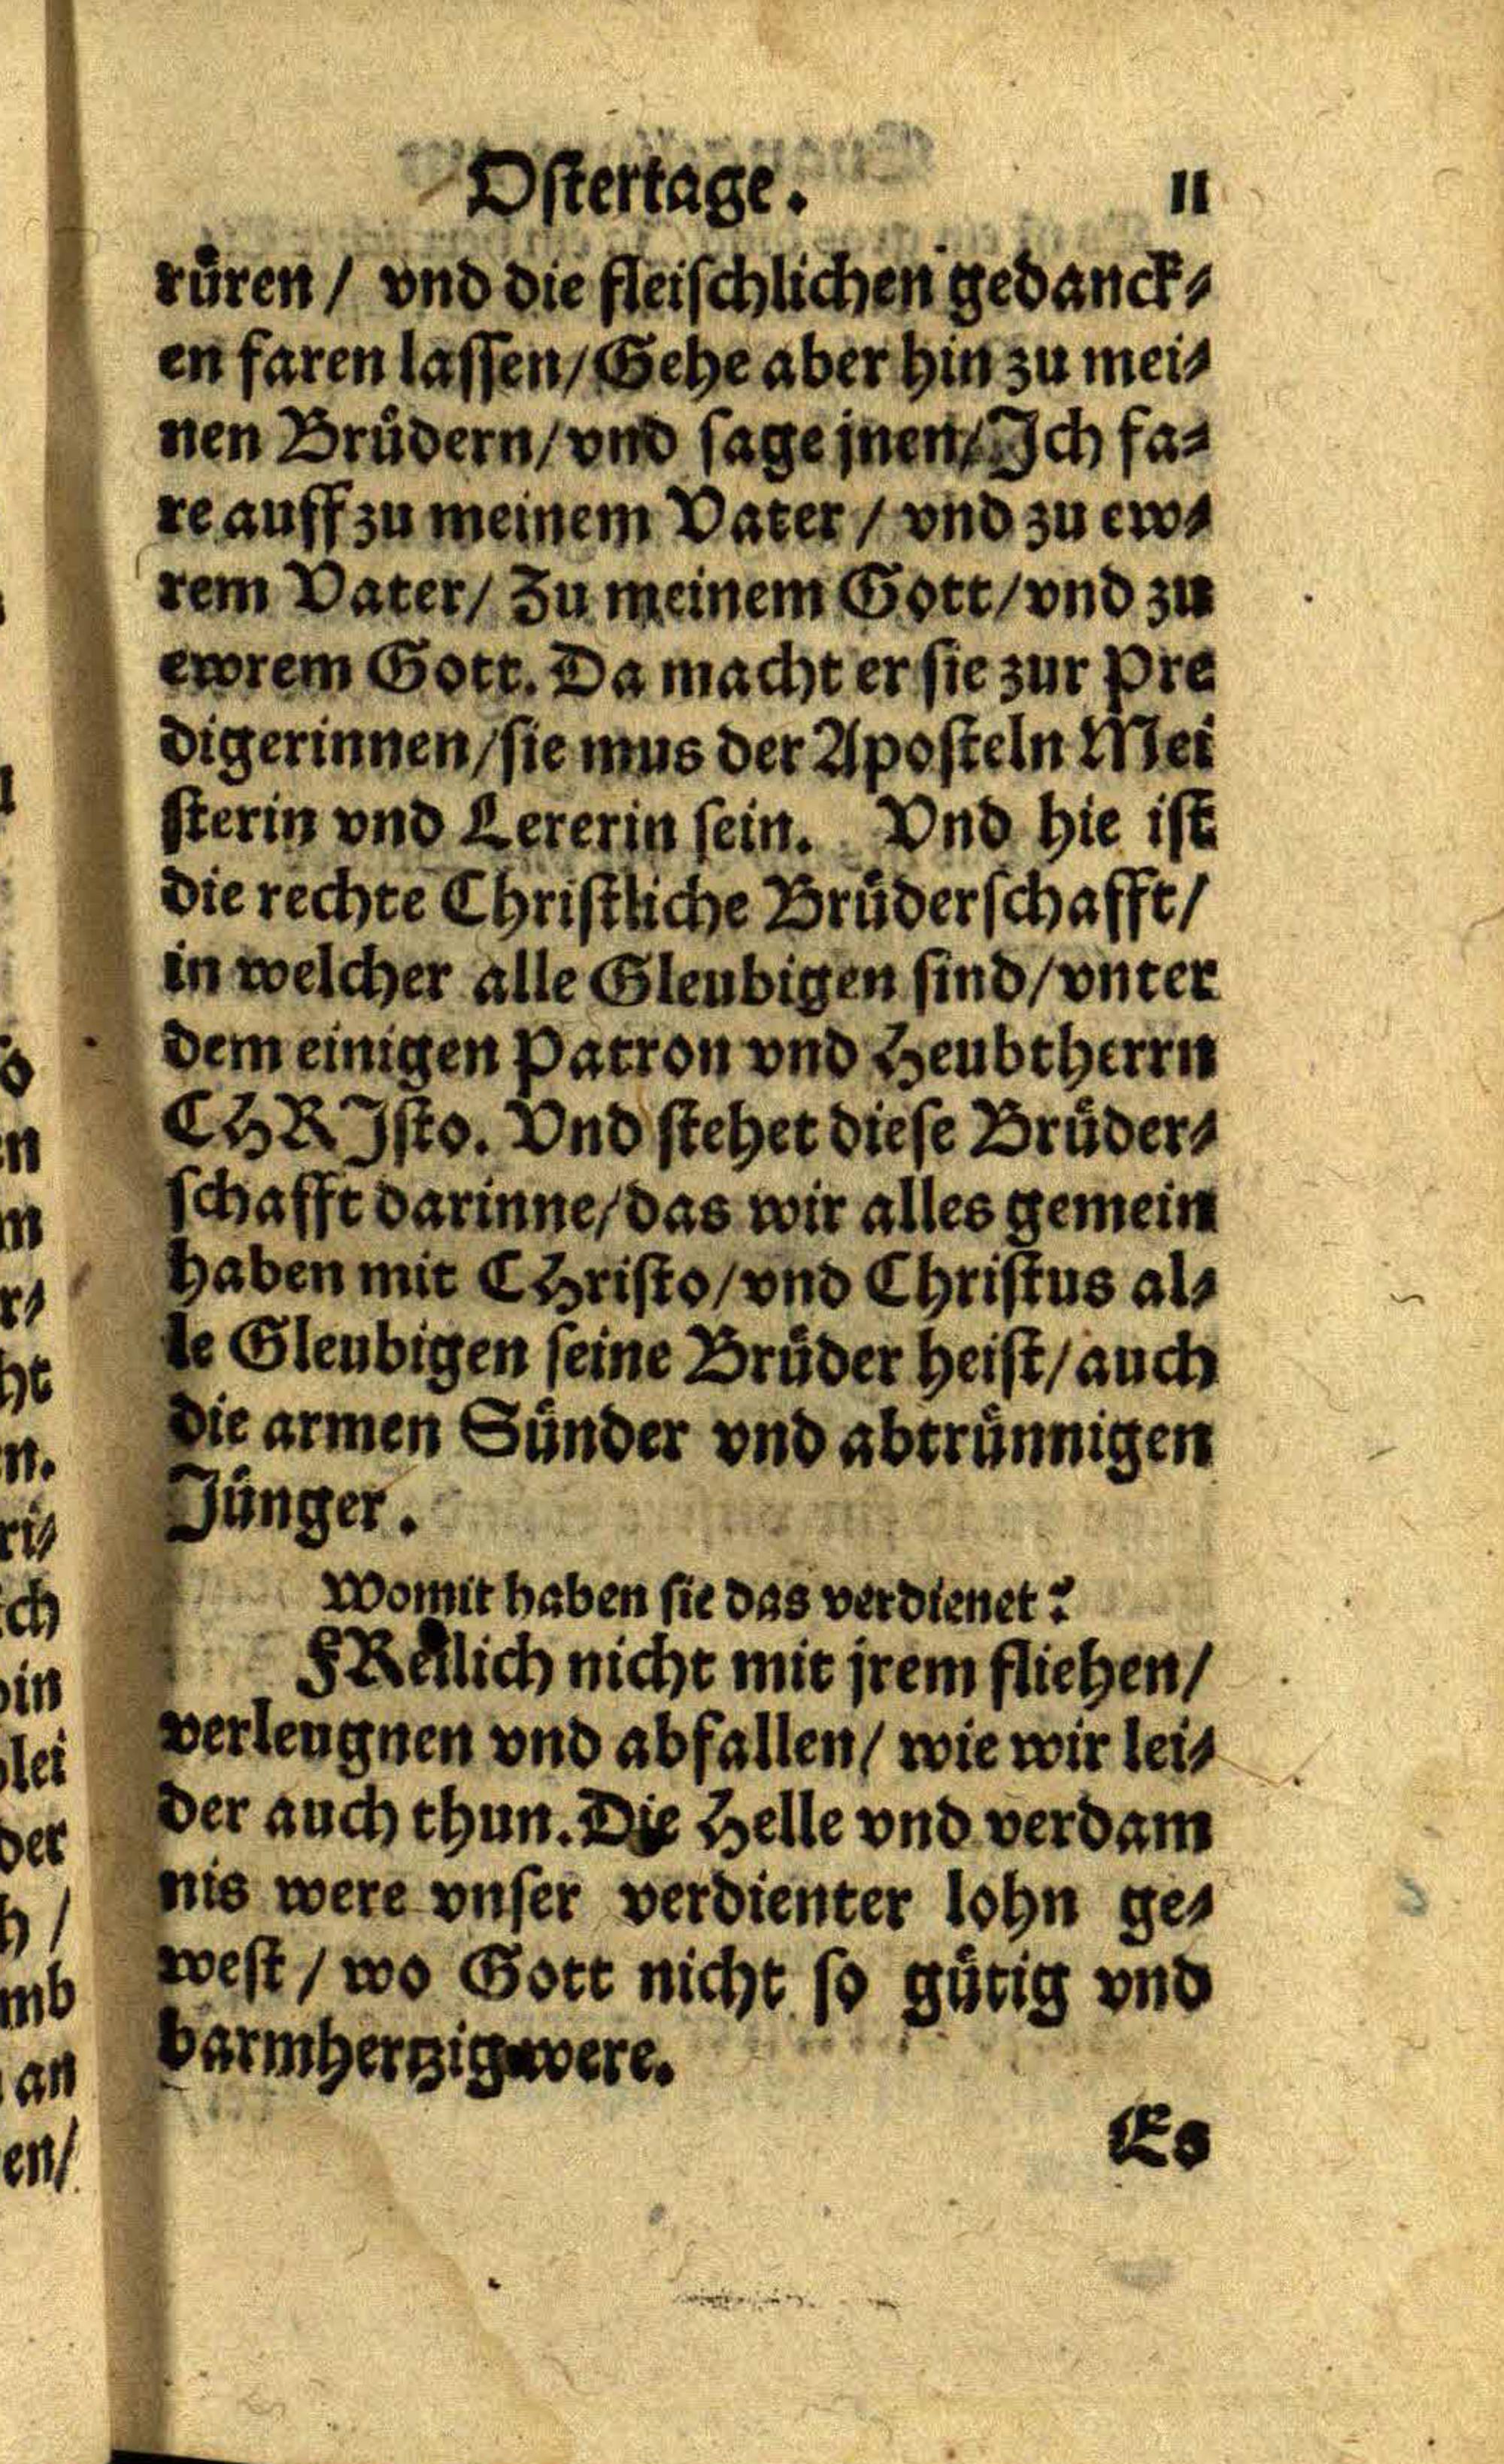 Oſtertage. 11
rüren / vnd die fleiſchlichen gedanck⸗
en faren laſſen/ Gehe aber hin zu mei⸗
nen Brüdern/ vnd ſage jnen/ Ich fa⸗
re auff zu meinem Vater / vnd zu ew⸗
rem Vater/ Zu meinem Gott/ vnd zu
ewrem Gott. Da macht er ſie zur Pre
digerinnen/ ſie mus der Apoſteln Mei
ſterin vnd Lererin ſein. Vnd hie iſt
die rechte Chriſtliche Brüderſchafft/
in welcher alle Gleubigen ſind/ vnter
dem einigen Patron vnd Heubtherrn
CHRIſto. Vnd ſtehet dieſe Brüder⸗
ſchafft darinne/ das wir alles gemein
haben mit CHriſto/ vnd Chriſtus al⸗
le Gleubigen ſeine Brüder heiſt/ auch
die armen Sünder vnd abtrünnigen
Jünger.
Womit haben ſie das verdienet?
FReilich nicht mit jrem fliehen/
verleugnen vnd abfallen/ wie wir lei⸗
der auch thun. Die Helle vnd verdam
nis were vnſer verdienter lohn ge⸗
weſt / wo Gott nicht ſo gütig vnd
barmhertzig were.
Es